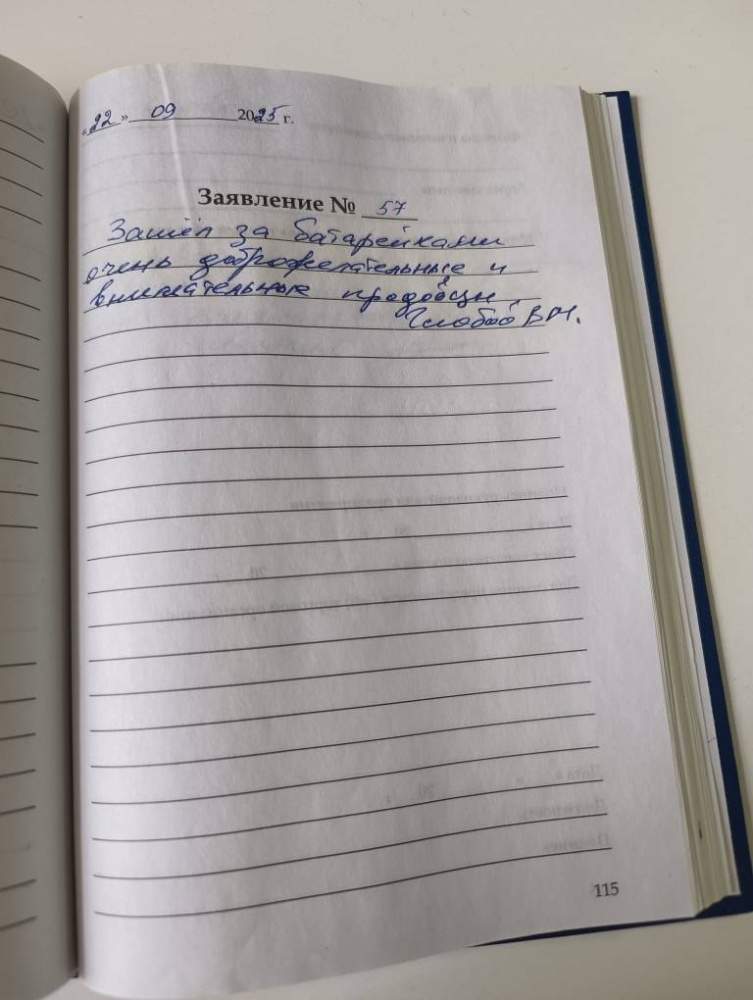 «22» 09 2025 г.
Заявление № 57
Зашёл за батарейками
очень доброжелательные и
внимательные
В.М.
115